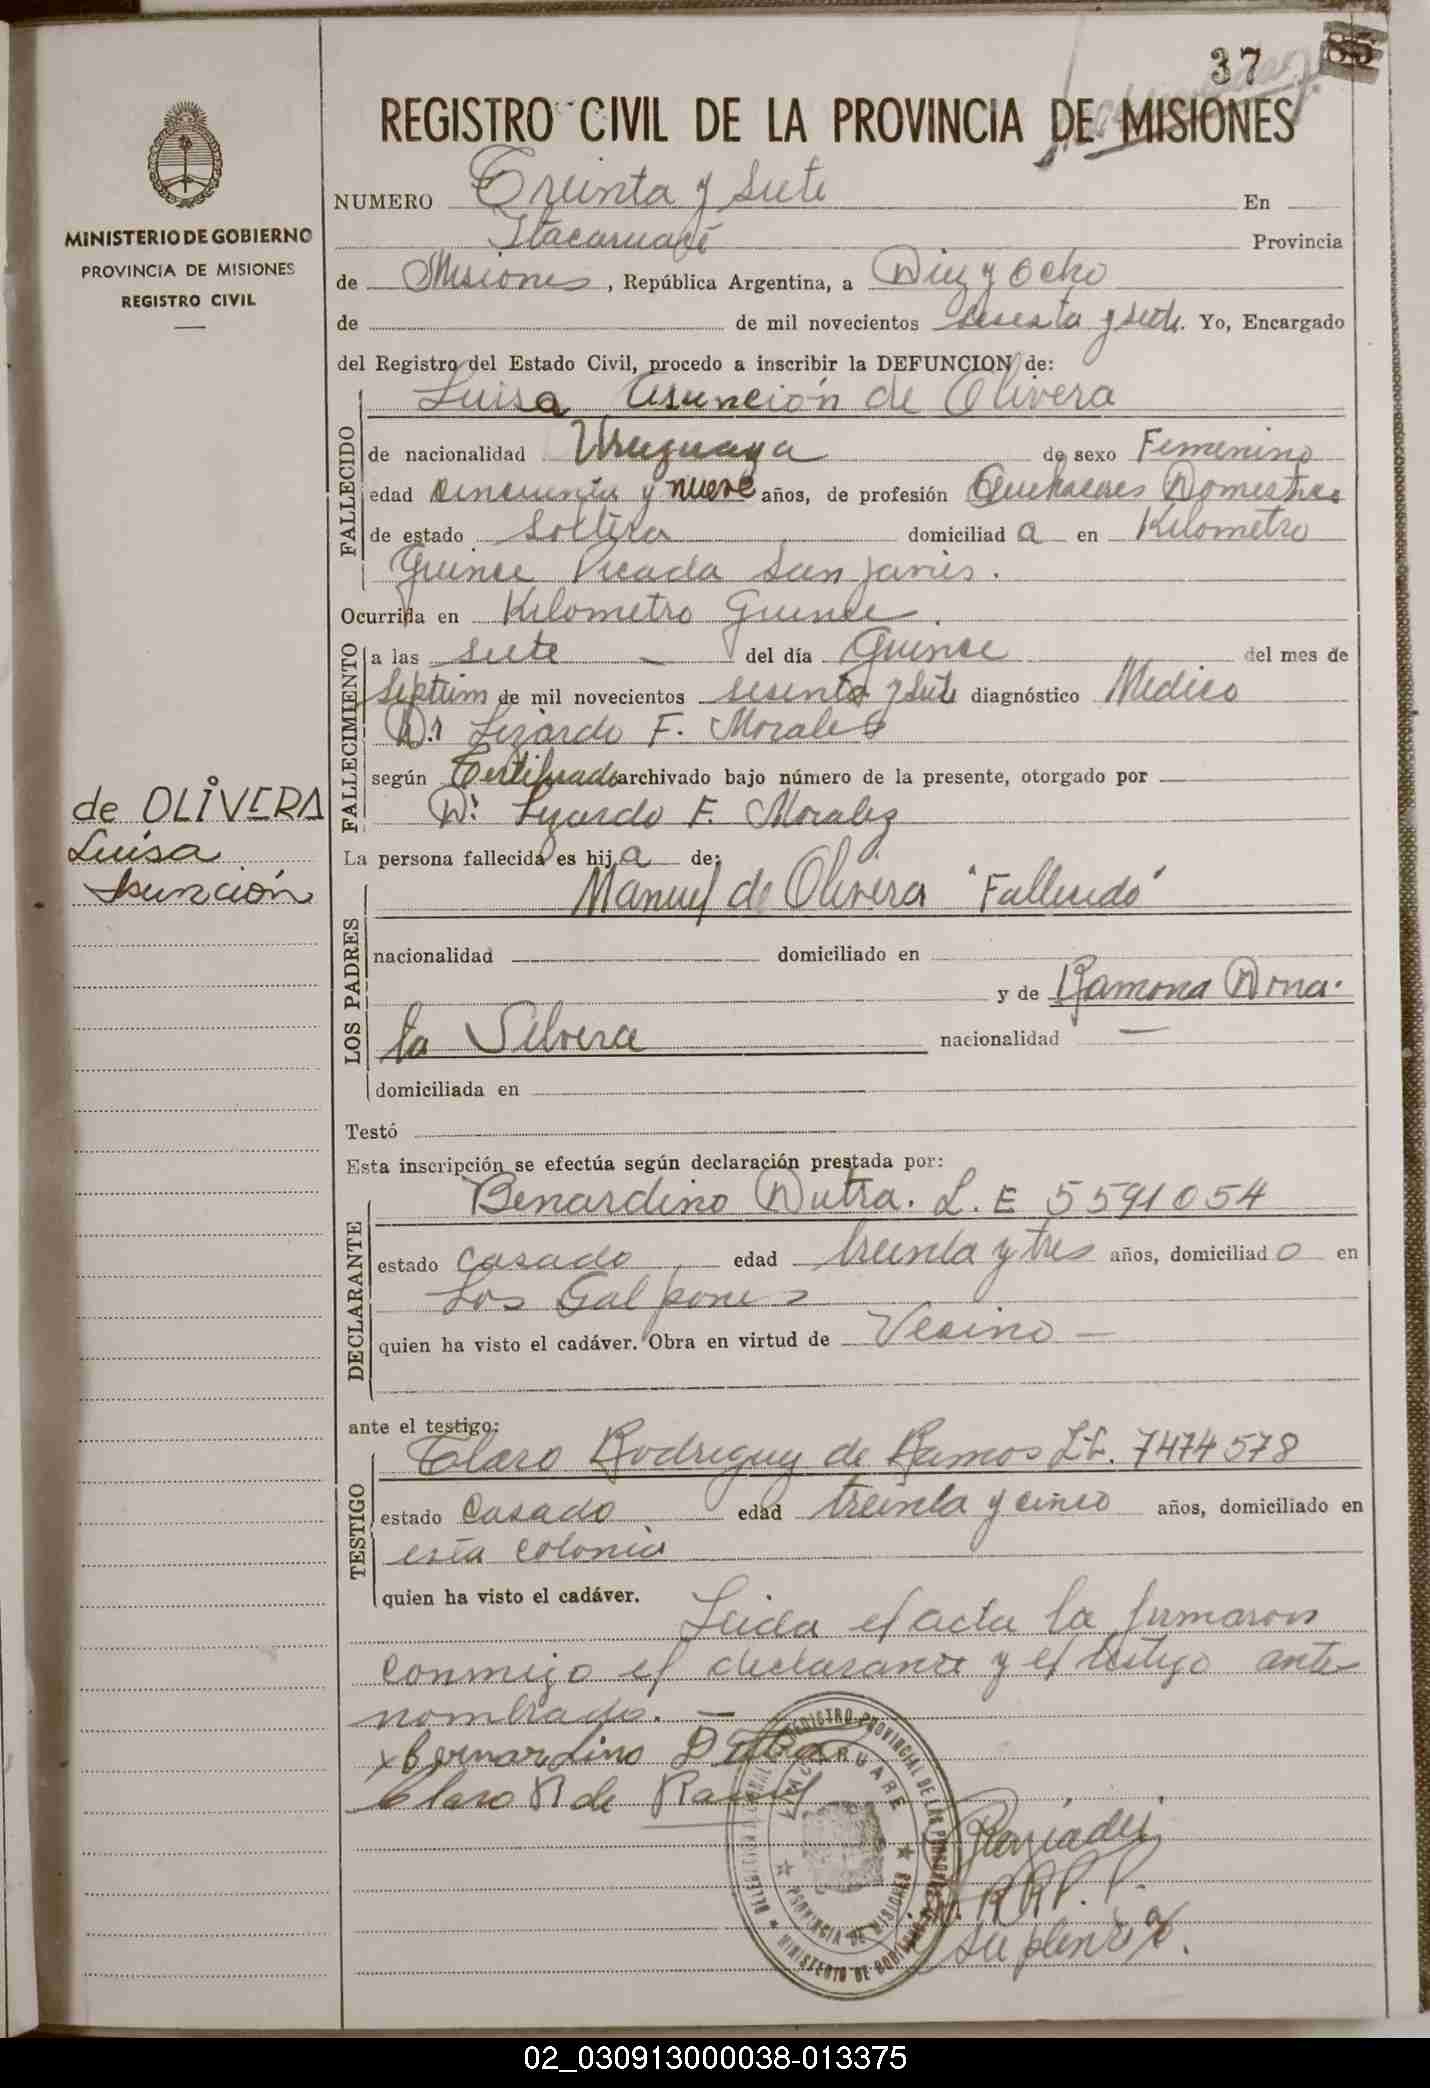 37 85
REGISTRO CIVIL DE LA PROVINCIA DE MISIONES
MINISTERIO DE GOBIERNO
PROVINCIA DE MISIONES
REGISTRO CIVIL
NUMERO Treinta y siete En
Itacaruaré Provincia
de Misiones, República Argentina, a Diez y ocho
de de mil novecientos sesenta y siete. Yo, Encargado
del Registro del Estado Civil, procedo a inscribir la DEFUNCION de:
Luisa Asunción de Olivera
FALLECIDO
de nacionalidad Uruguaya de sexo Femenino
edad cincuenta y nueve años, de profesión Quehaceres Domesticos
de estado Soltera domiciliad a en Kilometro
Quince Picada San Javier.
Ocurrida en Kilometro Quince.
FALLECIMIENTO
a las siete — del día Quince del mes de
Septiem de mil novecientos sesenta y siete diagnóstico Medico
Dr. Lizardo F. Morales
según Certificado archivado bajo número de la presente, otorgado por
Dr. Lizardo F. Moralez
de OLIVERA
Luisa
Asunción
La persona fallecida es hij a de:
LOS PADRES
Manuel de Olivera "Fallecido"
nacionalidad domiciliado en
y de Ramona Orna-
la Silvera nacionalidad —
domiciliada en
Testó
Esta inscripción se efectúa según declaración prestada por:
DECLARANTE
Benardino Dutra. L.E 5591054
estado casado edad treinta y tres años, domiciliad o en
Los Galpones
quien ha visto el cadáver. Obra en virtud de Vecino —
ante el testigo:
TESTIGO
Claro Rodriguez de Ramos L.E. 7474578
estado Casado edad treinta y cinco años, domiciliado en
esta colonia
quien ha visto el cadáver.
Leida el acta la firmaron
conmigo el declarante y el testigo ante
nombrado. —
x Bernardino Dutra
Claro R de Ramos
REGISTRO PROVINCIAL DE LAS PERSONAS
ITACARUARE
PROVINCIA DE MISIONES
MINISTERIO DE GOBIERNO
R.P.P.
Suplente
02_030913000038-013375